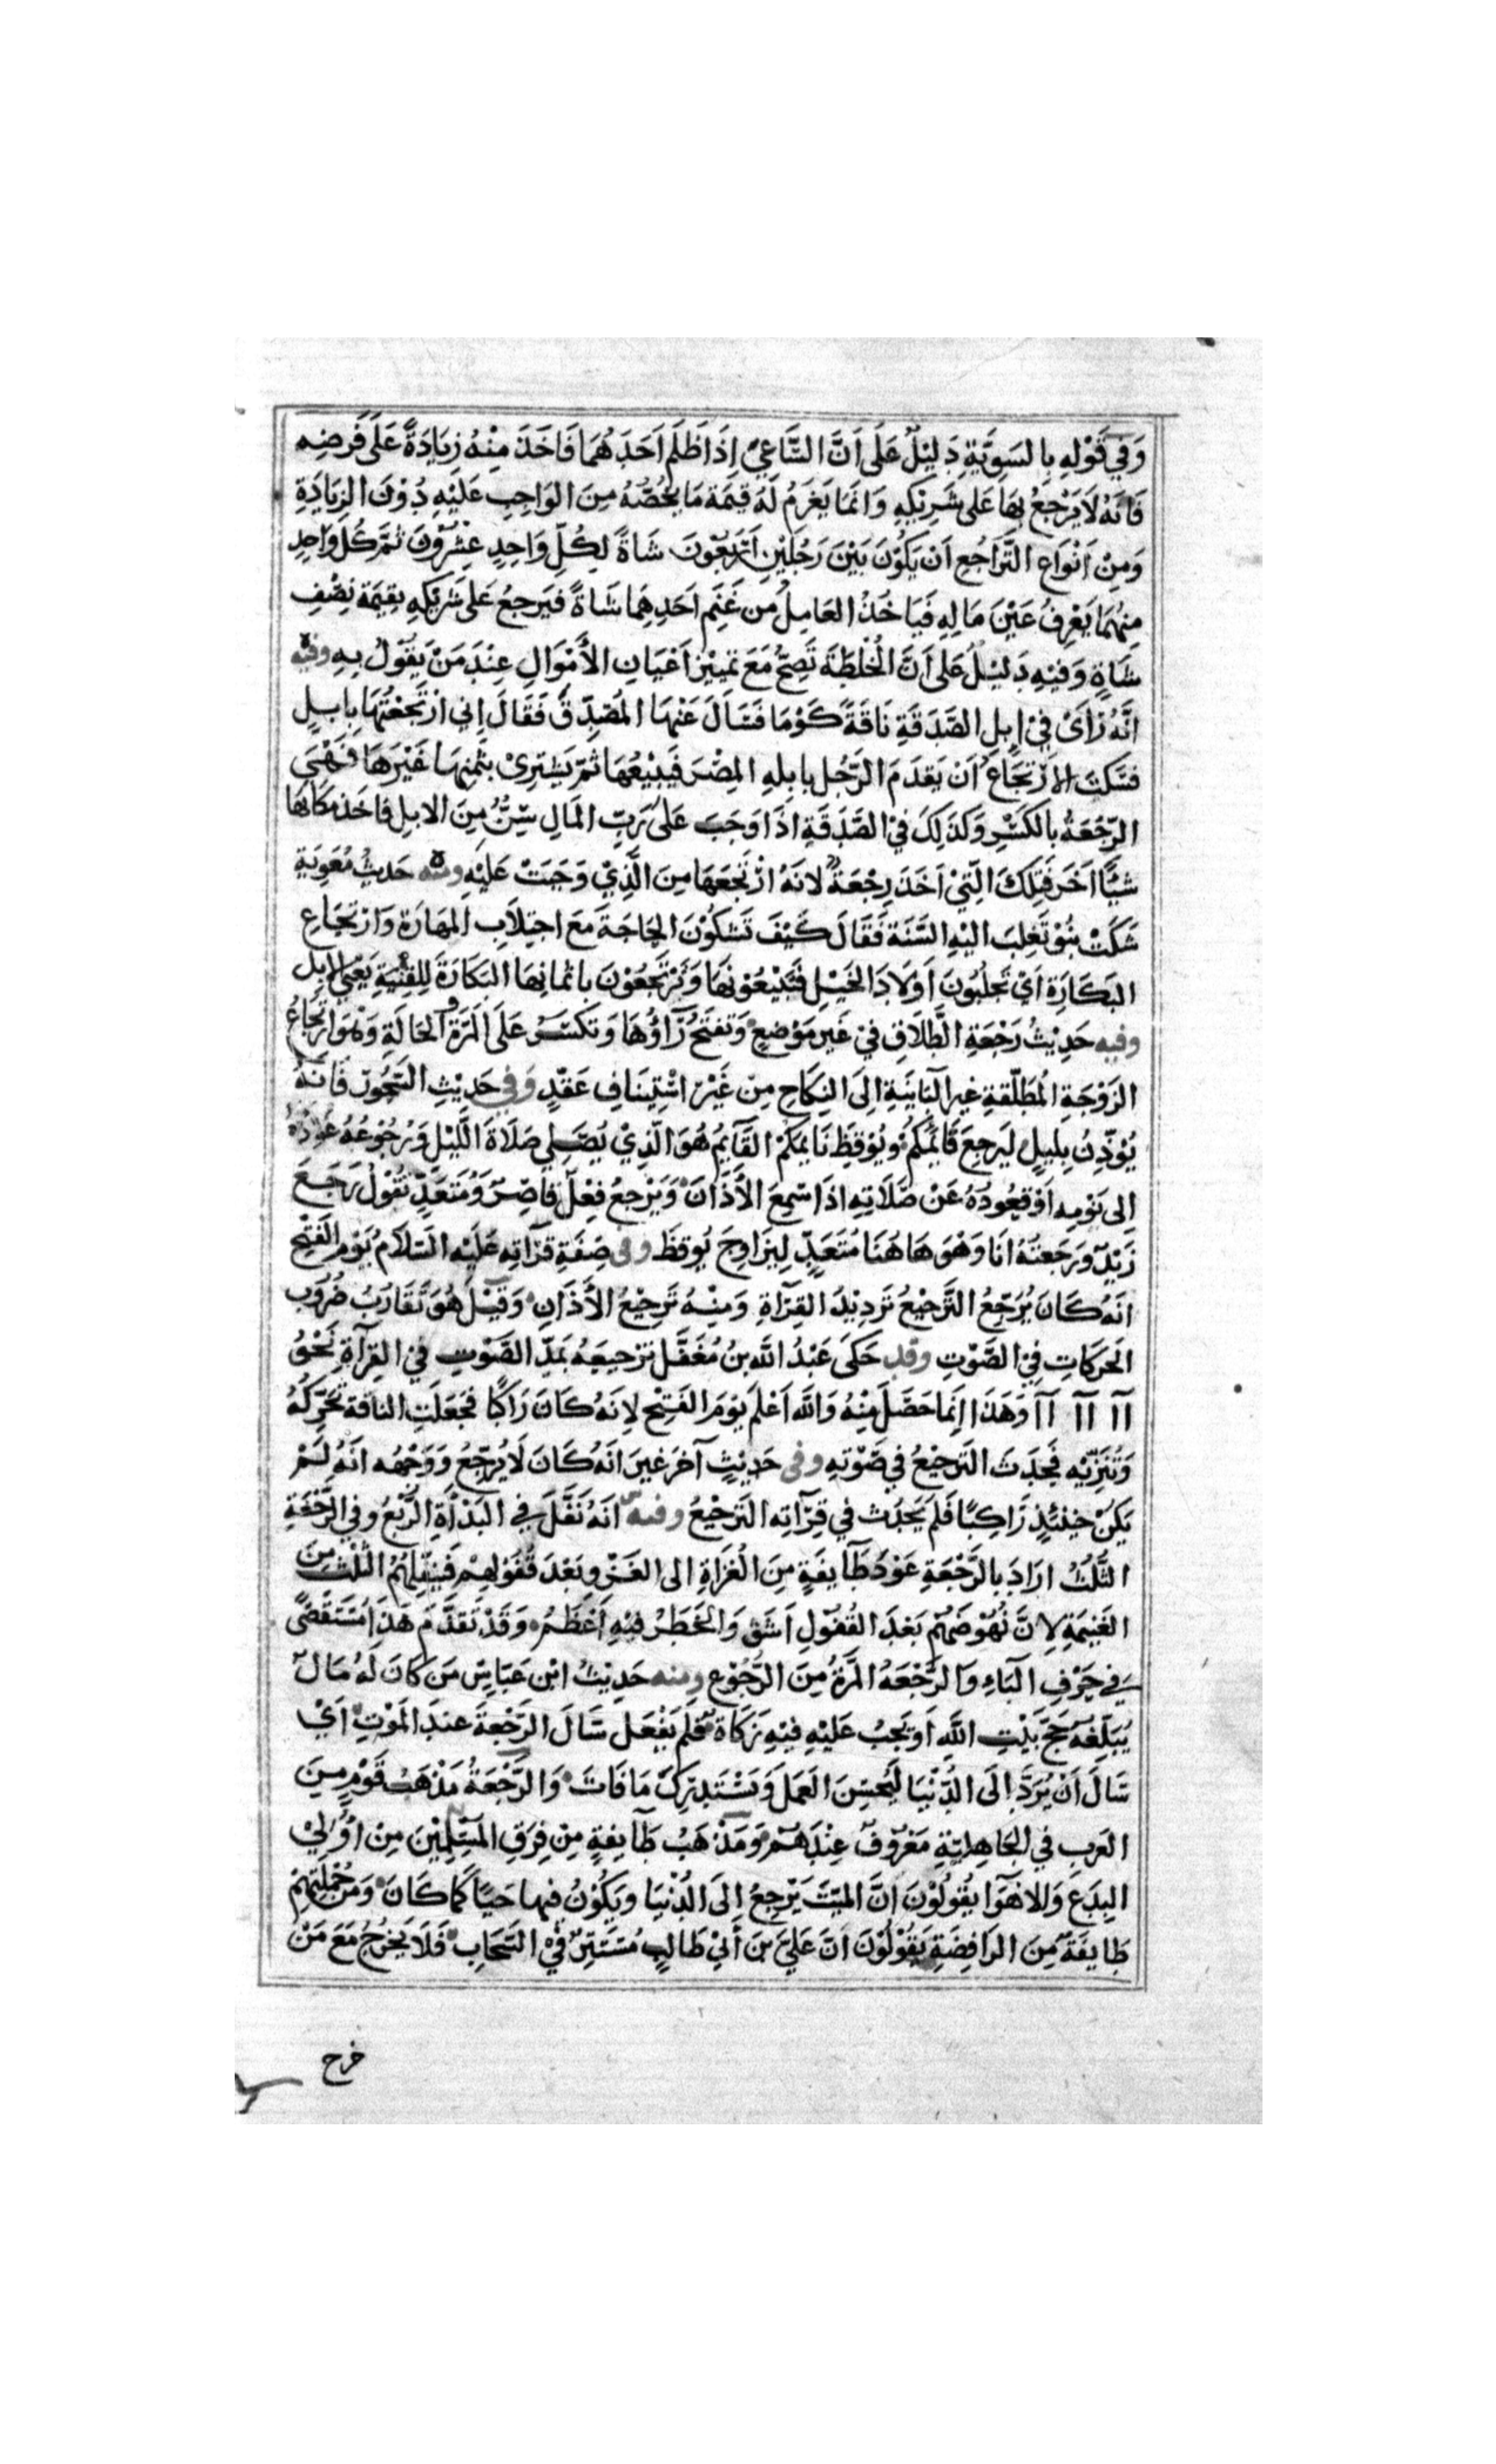 وَفِي قَوْلِهِ بِالسَّوِيَّةِ دَلِيْلٌ عَلَى اَنَّ السَّاعِيَ اِذَا ظَلَمَ اَحَدَهُمَا فَاخَذَ مِنْهُ زِيَادَةً عَلَى فَرضِهِ
فَانَهُ لَا يَرْجعُ بهَا عَلى شَرِيْكِهِ وَانَمَا يَغرَمُ لَهُ قِيمَةَ مَا يَخُصُّهُ مِنَ الوَاجِبِ عَلَيْهِ دُوْنَ الزِيَادَةِ
وَمِنْ اَنْوَاعِ التَّرَاجُعِ اَنْ يَكُوْنَ بَيْنَ رَجُلَيْنِ اَرْبَعُوْنَ شَاةً لِكُلِّ وَاحِدٍ عِشْرُوْنَ ثمَّ كُلُ وَاحِدٍ
مِنهُمَا يَعْرِفُ عَيْنَ مَالِهِ فَيَاخَذُ العَامِلُ من غَنَمِ اَحَدِهِمَا شَاةً فيَرجعُ عَلى شَرِيْكِهِ بِقِيْمَةِ نِصْفِ
شَاةٍ وَفيْهِ دَلِيْلٌ عَلى اَنَّ الخُلْطَةَ تَصِحُّ مَعَ تَمييْزِ اَعْيَانِ الأَمْوَالِ عِنْدَ مَنْ يَقُوْلُ بِهِ وفيْه
انَّهُ رَأَىْ فِيْ اِبِلِ الصَّدَقَةِ نَاقَةً كَوْمَا فَسَالَ عَنْهَا المُصَدِّقُ فَقَالَ اِني ارْتَجَعْتُهَا بِابِلٍ
فسَكَتَ الارْتجَاعُ اَنْ يَقدَمَ الرَّجُلُ بابِلهِ المِصْرَ فَيَبيْعُهَا ثمَّ يَشْتِرِيْ بثَمنِهَا غَيْرَهَا فَهْيَ
الرّجْعَةُ بالكَسْرِ وَكَذَلِكَ فيْ الصَّدَقَةِ اذَا وَجَبَ عَلَى رَبِّ المَالِ سِنٌّ مِنَ الابِلِ فاخَذ مَكَانَهَا
شيْأً اخَرَ فَتِلكَ الَّتِيْ اَخَذَ رِجْعَةٌ لانَهُ ارْتَجَعَهَا مِنَ الَّذِيْ وَجَبَتْ عَلَيْهِ ومنْه حَديثُ مُعَوِيَةِ
شَكَتْ بَنُوْ تَغلِبَ اليْهِ السَّنَة فَقَالَ كَيْفَ تَشكُوْنَ الحَاجَةَ مَعَ اجتِلَابِ المِهَارَةِ وَارْتجَاعِ
البِكَارَةِ اَيْ تَجلُبُونَ اَوْلَادَ الخَيْلِ فَتَبيْعُوْنَهَا وَتَرْتَجَعُوْنَ باثمَانِهَا البَكَارَةَ لِلقِنْيَةِ يَعْني الابِل
وفيه حَدِيْثُ رَجْعَةِ الطَّلَاقِ فيْ غَيرِ مَوْضِعٍ وَتفتَحُ رَآؤُهَا وَتكسَرُ عَلَى المَرَّةِ وَالحَالَةِ وَهُوَ ارْتجَاعُ
الزَوْجَةِ المُطَلّقةِ غير البَاينَةِ اِلَى النِكَاحِ مِنْ غَيْرِ اسْتِينَافِ عَقْدٍ وَفِي حَدِيْثِ السّحُورِ فَانَهُ
يُؤَذِّنُ بِلَيلٍ لِيَرجِعَ قَائمكُمْ وَيُوْقِظَ نَايمَكُمْ القَآيِمُ هُوَ الَّذِيْ يُصَلِي صَلَاةَ اللَّيْلِ وَرُجُوْعُهُ عَوْدُهُ
اِلى نَوْمِهِ اَوْ قعُوْدُهُ عَنْ صَلَاتِهِ اذَا سَمِعَ الأَذَانَ وَيَرْجِعُ فِعْلٌ قاصِرٌ وَمُتَعَدٍّ تَقُوْلُ رَجَعَ
زَيْدٌ وَرَجَعتُهُ اَنَا وَهْوَ هَا هُنَا مُتَعَدٍّ لِيُزَاوِجَ يُوقظَ وفى صِفَةِ قرَآتهِ عَلَيْهِ السَّلَامُ يَوْمَ الفَتْحِ
انَهُ كَانَ يُرَجّعُ التَّرجِيْعُ تَرَدِيْدُ القِرَآةِ وَمنْهُ تَرجيْعُ الأَذَانِ وَقيْلَ هُوَ تَقَارُبُ ضُرُوْبِ
الحَرَكَاتِ فِيْ الصَّوْتِ وقد حَكَى عَبْدُ اللَّه بنُ مُغَفَّلٍ تَرْجيعَهُ بَمدِّ الصَّوْتِ في القِرآةِ نَحْوُ
اآ اآ اآ وَهَذا اِنَمَا حَصَلَ مِنْهُ وَاللَّه اَعْلَم يَوْمَ الفَتْحِ لِانَهُ كَانَ رَاكِبًا فجَعَلَتِ الناقة تحَرِّكُهُ
وَتُنَزِّيْه فيَحدَثَ التَرجيْعُ في صَوْتِهِ وفى حَدِيْثٍ آخَرَ غيَرَ انَهُ كَانَ لَا يُرَجِّعُ وَوَجْهُه انَهُ لَمْ
يَكنْ حِيْنَئذٍ رَاكِبًا فَلَم يَحدُث في قِرآتهِ التَرجِيْعُ وفيه انَهُ نَفَّلَ في البَدْأَةِ الرُّبْعَ وفي الرَّجْعَةِ
الثُلُثَ ارَادَ بالرَّجْعَةِ عَوْدَ طَآيفَةٍ مِنَ الغُزَاةِ الى الغَزْوِ بَعْدَ قُفُوْلِهِمْ فَيُنَفِّلُهُمْ الثُلُثَ مِنَ
الغَنِيْمَةِ لِانَّ نُهُوْضَهُمْ بَعْدَ القُفُوْلِ اَشَقّ وَالخَطَرُ فيْهِ اَعْظَمُ وَقَدْ تَقَدَّمَ هَذا مُسْتَقْصًى
في حَرْفِ البَاءِ وَالرَّجْعَةُ المَرَّةُ مِنَ الرُجُوْعِ ومنه حَدِيْثُ ابْنِ عَبَاسٍ مَن كَانَ لَهُ مَالٌ
يُبَلِّغهُ حَجَّ بَيْتِ اللَّهِ اَوْ تَجبُ عَلَيْهِ فيْهِ زَكَاةٌ فَلَم يَفعَل سَالَ الرَّجْعَةَ عندَ المَوْتِ اَيْ
سَالَ اَنْ يُرَدَّ اِلَى الدُّنْيَا لِيُحسِنَ العَمَلَ وَيَسْتَدرِكَ مَا فَاتَ وَالرَّجْعَةُ مَذْهَبُ قَوْمٍ مِنَ
العَرب في الجَاهِلِيَّةِ مَعْرُوفٌ عِنْدَهُمْ وَمَذْهَبُ طَآيفةٍ مِن فِرَقِ المسْلِمِيْنَ مِنْ اُوْلِيْ
البِدَعَ وَالاهْوَآ يقُوْلُوْنَ انَّ المَيّتَ يَرْجعُ اِلَى الدُّنْيَا وَيَكُوْنُ فيها حَيًا كَمَا كَانَ وَمن جُمْلَتِهِمْ
طَايفَة مِنَ الرَافِضَةِ يَقُوْلُوْنَ انَّ عَليَّ بنَ أَبيْ طَالِبٍ مُسْتَتِرٌ فيْ السَّحَابِ فَلَا يَخرُجُ مَعَ مَنْ
خرج